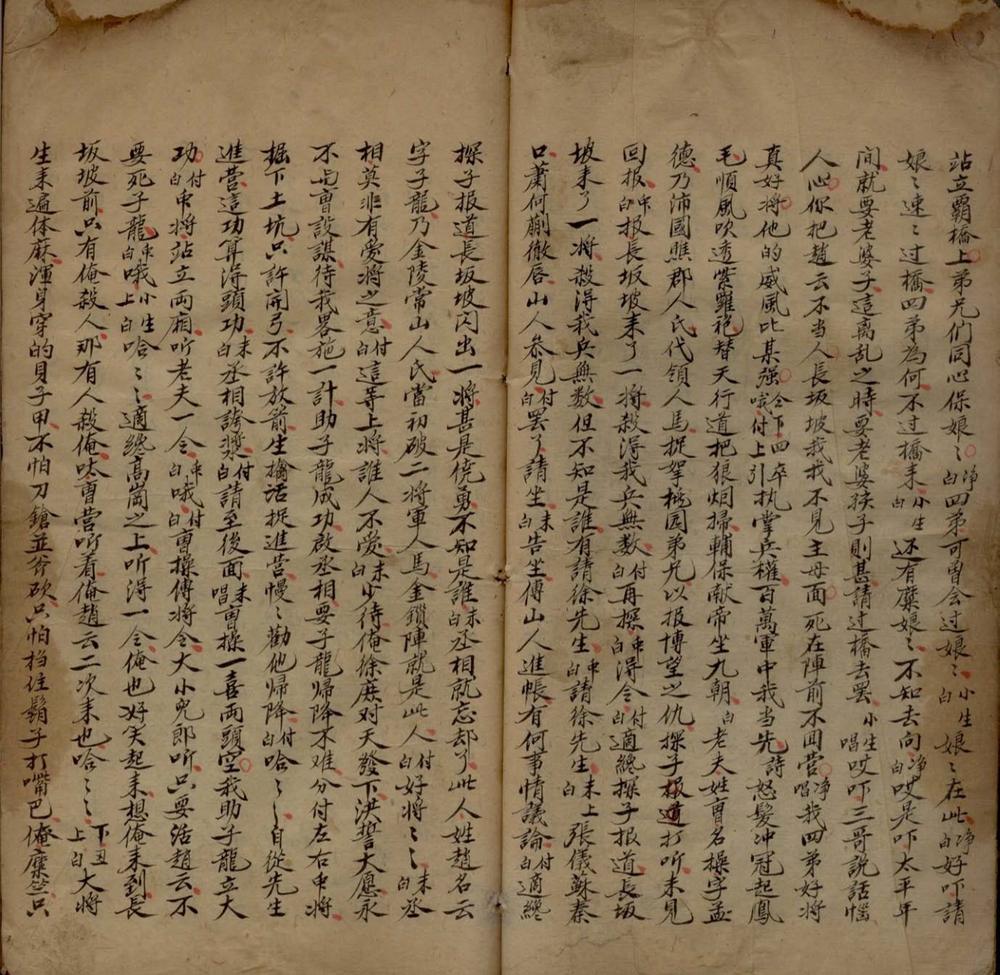 站立霸橋上弟兄們同心保娘〻净白四弟可曾会过娘〻小生白娘〻在此净白好吓請
娘〻速〻过橋四弟為何不过橋来小生白还有糜娘〻不知去向净白哎是吓太平年
間就要老婆子這离乱之時要老婆孩子則甚請过橋去罢小生唱哎吓三哥說話惱
人心你把趙云不当人長坂坡我找不見主母面死在陣前不回营净唱我四弟好将
真好将他的威風比某强哦付上引仝下四卒执掌兵權百萬軍中我当先詩怒髮冲冠起鳳
毛順風吹透紫羅袍替天行道把狼烟掃輔保献帝坐九朝白老夫姓曹名操字孟
德乃沛國譙郡人氏代領人馬捉拏桃园弟兄以报博望之仇探子报道打听未見
回报中白报長坂坡来了一将殺得我兵無数付白再探中白得令付白適纔探子报道長坂
坡来了一将殺得我兵無数但不知是誰有請徐先生中白請徐先生末上白張儀蘇秦
口蕭何蒯徹唇山人叅見付白罢了請坐末白告坐傳山人進帳有何事情議論付白適纔
探子报道長坂坡闪出一将甚是僥勇不知是誰末白丞相就忘却了此人姓趙名云
字子龍乃金陵常山人氏當初破二将軍人馬金鎖陣就是此人付白好将〻〻末白丞
相莫非有爱将之意付白這等上将誰人不爱末白少待俺徐庶对天發下洪誓大愿永
不与曹設謀待我畧施一計助子龍成功啟丞相要子龍歸降不难分付左右中将
掘下土坑只許開弓不許放箭生擒活捉進营慢〻勸他歸降付白哈〻〻自從先生
進营這功算得頭功末白丞相誇奬付白請至後面末唱曹操一喜两頭空我助子龍立大
功付白中将站立两廂听老夫一令中白哦付白曹操傳将令大小兒郎听只要活趙云不
要死子龍中白哦小生上白哈〻〻適纔高崗之上听得一令俺也好笑起来想俺来到長
坂坡前只有俺殺人那有人殺俺呔曹营听着俺趙云二次来也哈〻〻下丑上白大将
生来遍体麻渾身穿的貝子甲不怕刀鎗並斧砍只怕挡住鬍子打嘴巴俺糜竺只